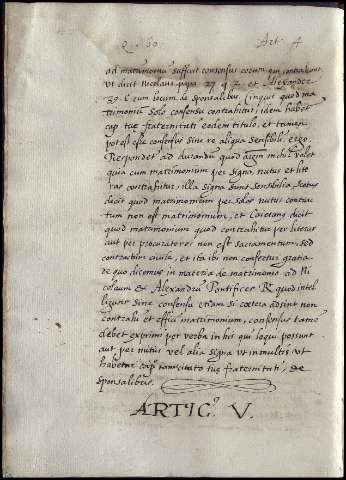 Q. 60 Art. 4
ad matrimonium sufficit consensus eorum qui contrahunt
ut dicit Nicolaus papa 27 q 2 et Alexander
3º c cum locum de sponsalibus Cinquit quod ma
trimonium solo consensu contrahitur, idem habet
cap. tuę fraternitati eodem titulo, et tamen
potest esse consensus sine re aliqua sensibili, ergo.
Respondet ad durandum quod nihil valet
quia cum matrimonium per signa, nutus et lite
ras contrahitur, illa signa sunt sensibilia, scotus
dicit quod matrimonium per solos nutus contrac
tum non est matrimonium, et Caietang dicit
quod matrimonium quod contrahitur per literas
aut per procuratores non est sacramentum, sed
contractum civile, et ita ibi non confertur gratia
de quo dicemus in materia de matrimonio ad Ni
colaum et Alexandrum Pontifices R quod intel
liguntur sine consensu etiam si cœtera adsint non
contrahi et effici matrimonium, consensus tamen
debet exprimi per verba in his qui loqui possunt
aut per nutus vel alia signa ut in multis ut
habetur cap. tuę fraternitati, de
sponsalibus.
ARTIC.º V.